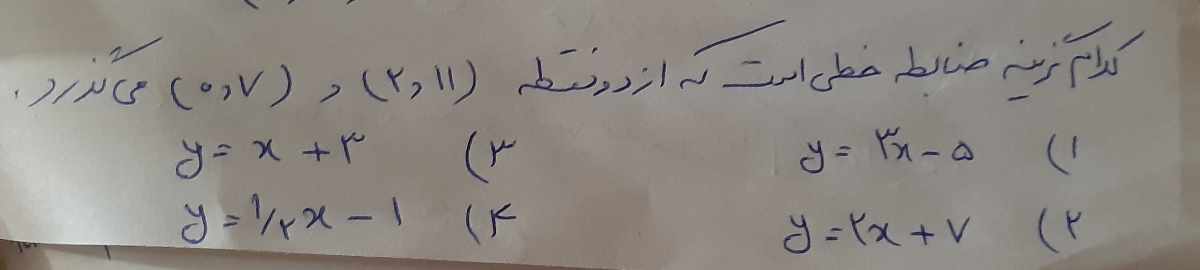 کدام گزینه ضابطه خطی است که از دو نقطه (۲و۱۱) و (۰و۷) می گذرد.
۱) y = ۳x - ۵ ۳) y = x + ۳
۲) y = ۲x + ۷ ۴) y = ۱/۲ x - ۱